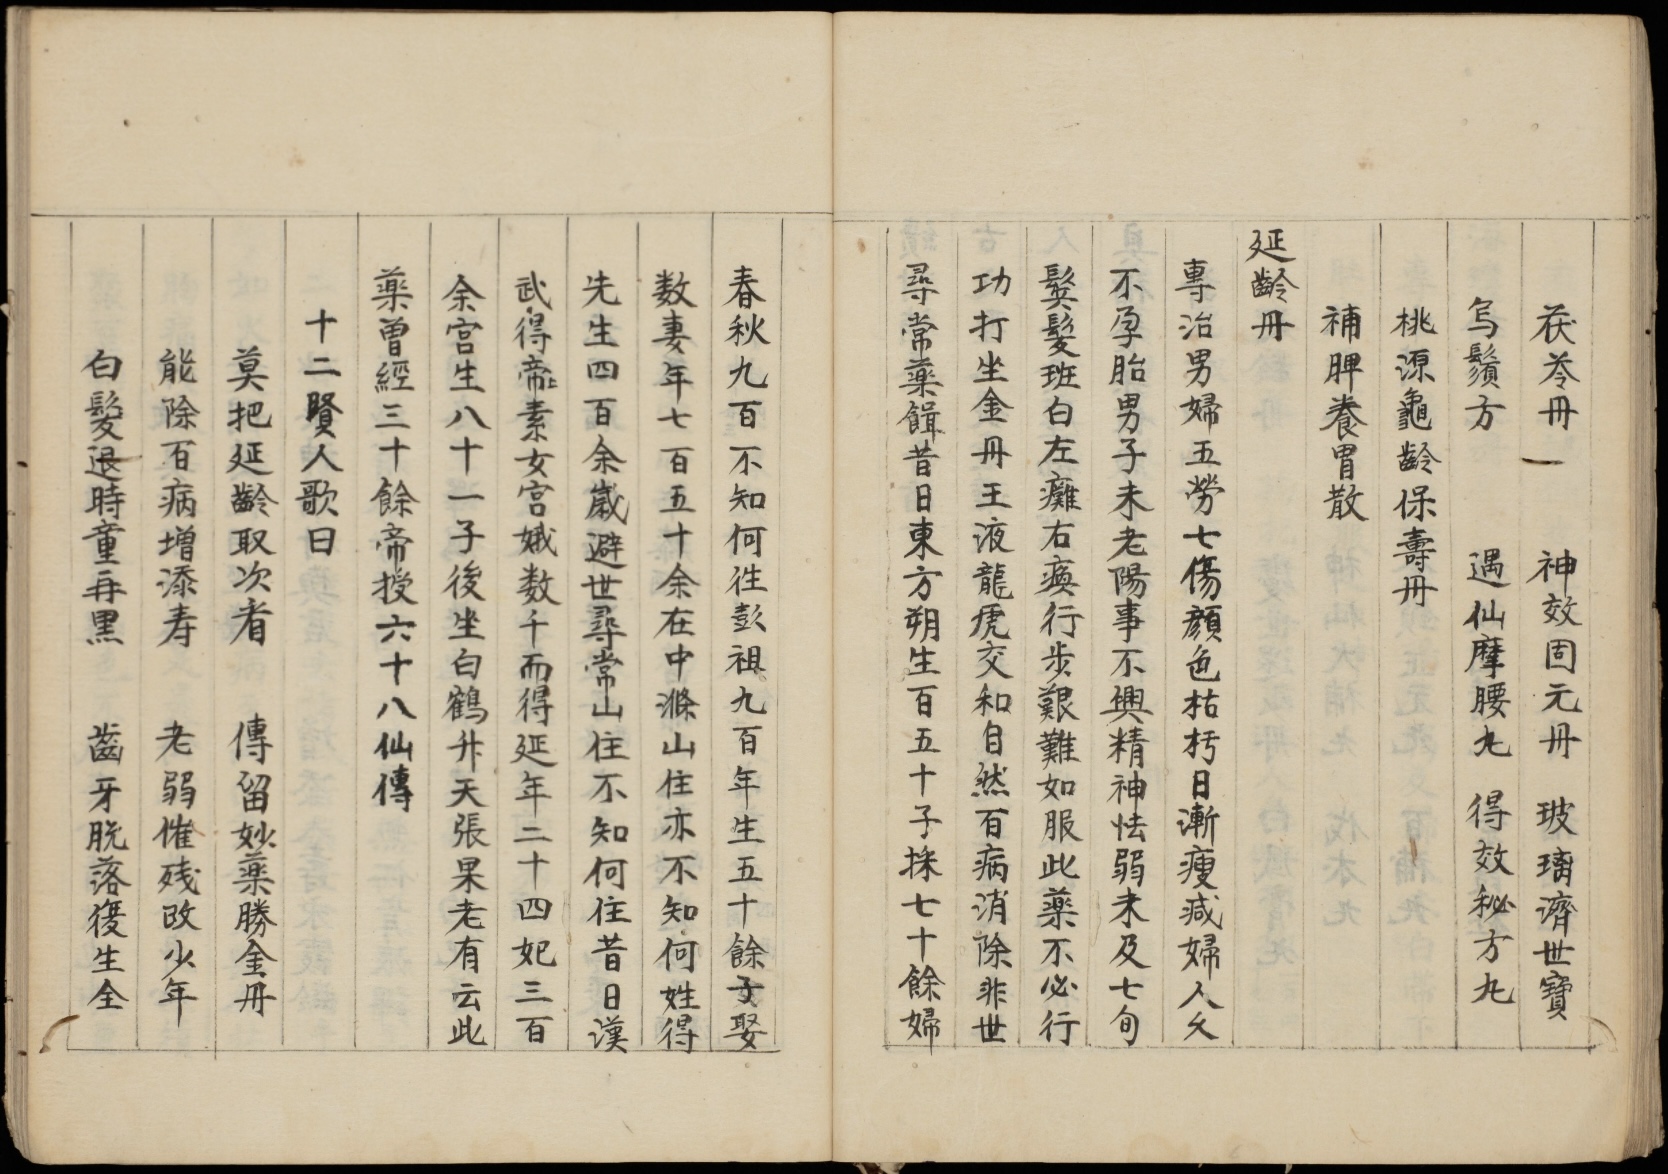 茯苓丹　神效固元丹　玻璃濟世寶
烏鬚方　遇仙摩腰丸　得效秘方丸
桃源龜齡保壽丹
補脾養胃散
延齡丹
專治男婦五勞七傷顏色枯朽日漸瘦減婦人久
不孕胎男子未老陽事不興精神怯弱未及七旬
鬓髮班白左癱右瘓行步艱難如服此藥不必行
功打坐金丹王液龍虎交和自然百病消除非世
尋常藥餌昔日東方朔生百五十子採七十餘婦
春秋九百不知何徃彭祖九百年生五十餘子娶
数妻年七百五十余在中滌山住亦不知何姓得
先生四百余歲避世尋常山住不知何住昔日漢
武得帝素女宮娥数千而得延年二十四妃三百
余宮生八十一子後坐白鶴升天張果老有云此
藥曾經三十餘帝授六十八仙傳
十二賢人歌曰
莫把延齡取次者　傳留妙藥勝金丹
能除百病增添寿　老弱惟残改少年
白髮退時童再黑　齒牙脫落復生全